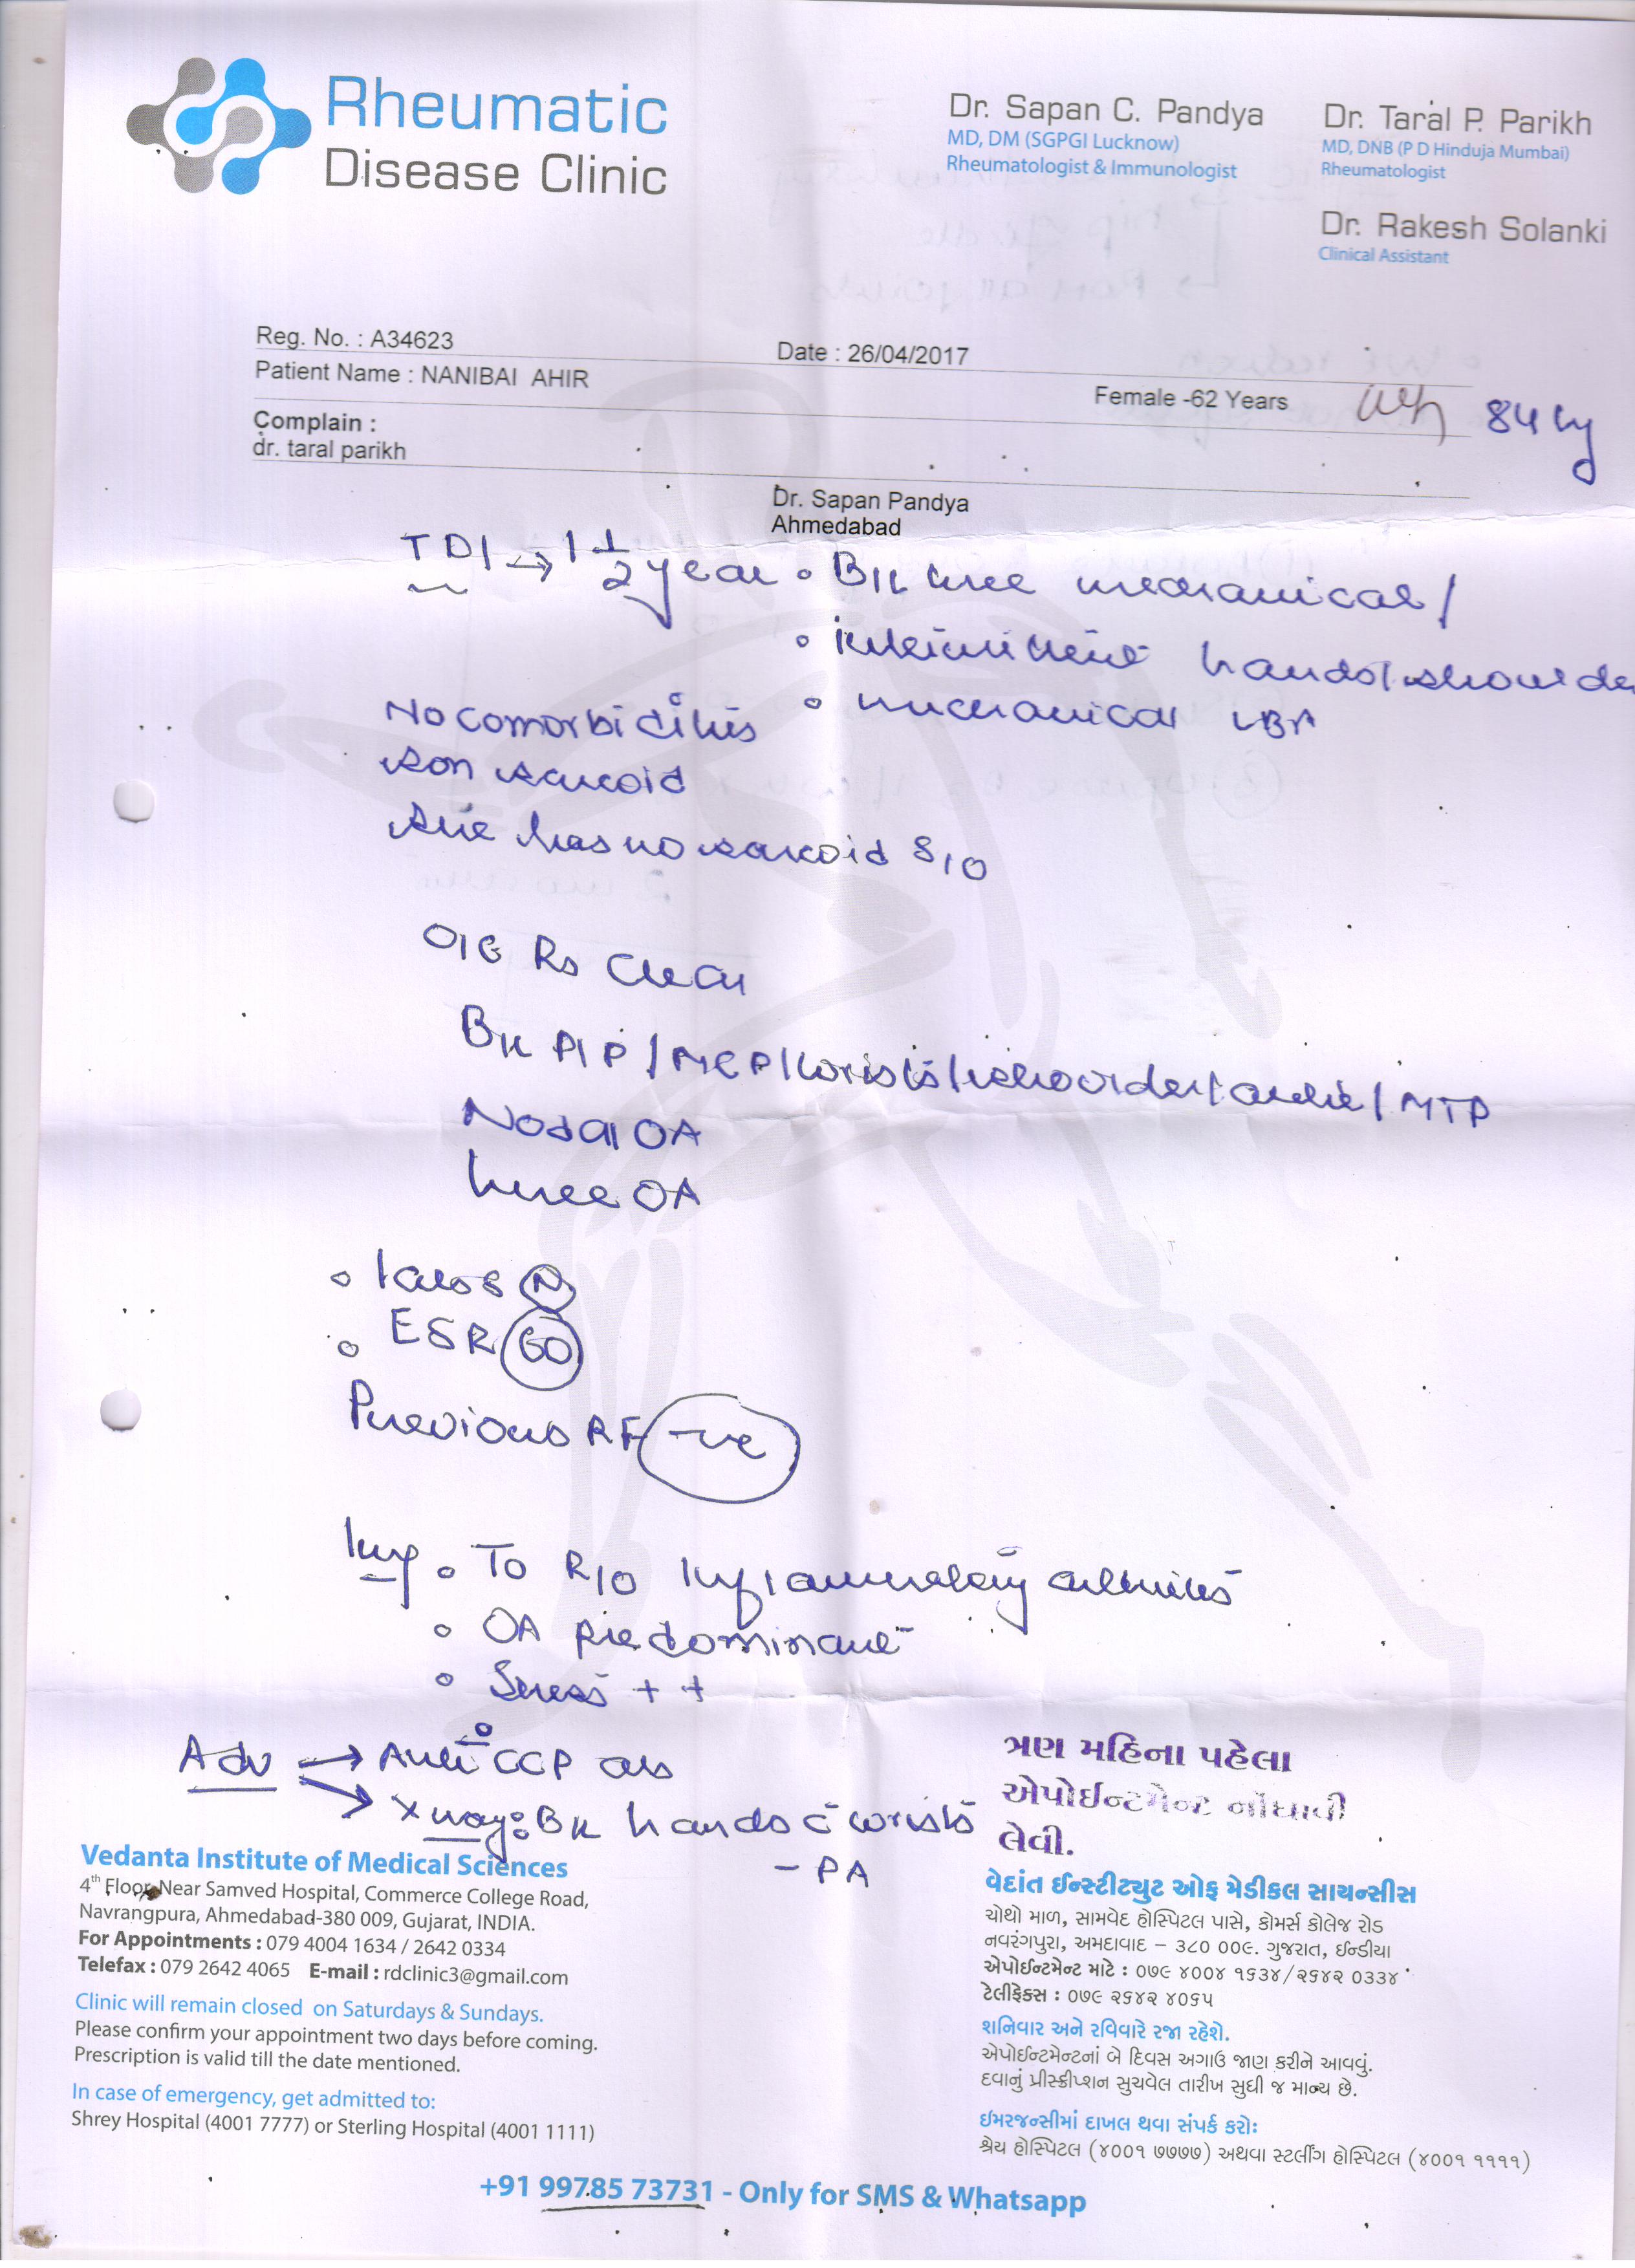 Rheumatic
Disease Clinic
Dr. Sapan C. Pandya
MD, DM (SGPGI Lucknow)
Rheumatologist & Immunologist
Dr. Taral P. Parikh
MD, DNB (P D Hinduja Mumbai)
Rheumatologist
Dr. Rakesh Solanki
Clinical Assistant
Reg. No. : A34623
Date : 26/04/2017
Patient Name : NANIBAI AHIR
Female -62 Years
84 kg
Complain :
dr. taral parikh
Dr. Sapan Pandya
Ahmedabad
TDI → 1 1/2 year
• B/L knee mechanical /
• intermittent hands / shoulde
• mechanical LBA
No comorbidities
son sarcoid
she has no sarcoid S/O
O/E Rs Clear
B/L PIP / MCP / wrists / shoulder / ankle / MTP
Nodal OA
knee OA
• labs (N)
• ESR (60)
Previous RF (-ve)
Imp • To R/O Inflammatory arthritis
• OA predominant
• Stress + +
Adv → Anti CCP abs
→ X-ray: B/L hands c̄ wrists
- PA
ત્રણ મહિના પહેલા
એપોઈન્ટમેન્ટ નોંધાવી
લેવી.
Vedanta Institute of Medical Sciences
4th Floor, Near Samved Hospital, Commerce College Road,
Navrangpura, Ahmedabad-380 009, Gujarat, INDIA.
For Appointments : 079 4004 1634 / 2642 0334
Telefax : 079 2642 4065 E-mail : rdclinic3@gmail.com
Clinic will remain closed on Saturdays & Sundays.
Please confirm your appointment two days before coming.
Prescription is valid till the date mentioned.
In case of emergency, get admitted to:
Shrey Hospital (4001 7777) or Sterling Hospital (4001 1111)
વેદાંત ઈન્સ્ટીટ્યુટ ઓફ મેડીકલ સાયન્સીસ
ચોથો માળ, સામવેદ હોસ્પિટલ પાસે, કોમર્સ કોલેજ રોડ
નવરંગપુરા, અમદાવાદ – ૩૮૦ ૦૦૯. ગુજરાત, ઈન્ડીયા
એપોઈન્ટમેન્ટ માટે : ૦૭૯ ૪૦૦૪ ૧૬૩૪/૨૬૪૨ ૦૩૩૪
ટેલીફેક્સ : ૦૭૯ ૨૬૪૨ ૪૦૬૫
શનિવાર અને રવિવારે રજા રહેશે.
એપોઈન્ટમેન્ટનાં બે દિવસ અગાઉ જાણ કરીને આવવું.
દવાનું પ્રીસ્ક્રીપ્શન સુચવેલ તારીખ સુધી જ માન્ય છે.
ઈમરજન્સીમાં દાખલ થવા સંપર્ક કરો:
શ્રેય હોસ્પિટલ (૪૦૦૧ ૭૭૭૭) અથવા સ્ટર્લીંગ હોસ્પિટલ (૪૦૦૧ ૧૧૧૧)
+91 99785 73731 - Only for SMS & Whatsapp